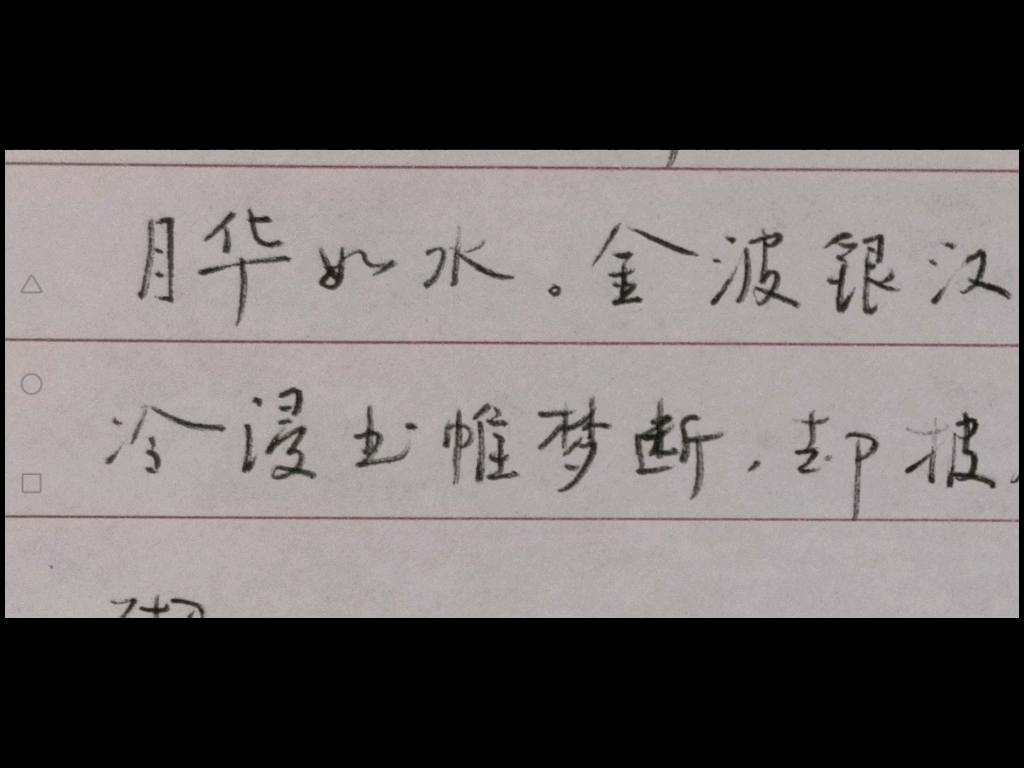 月华如水。金波銀汉
冷浸书帷梦断,却披